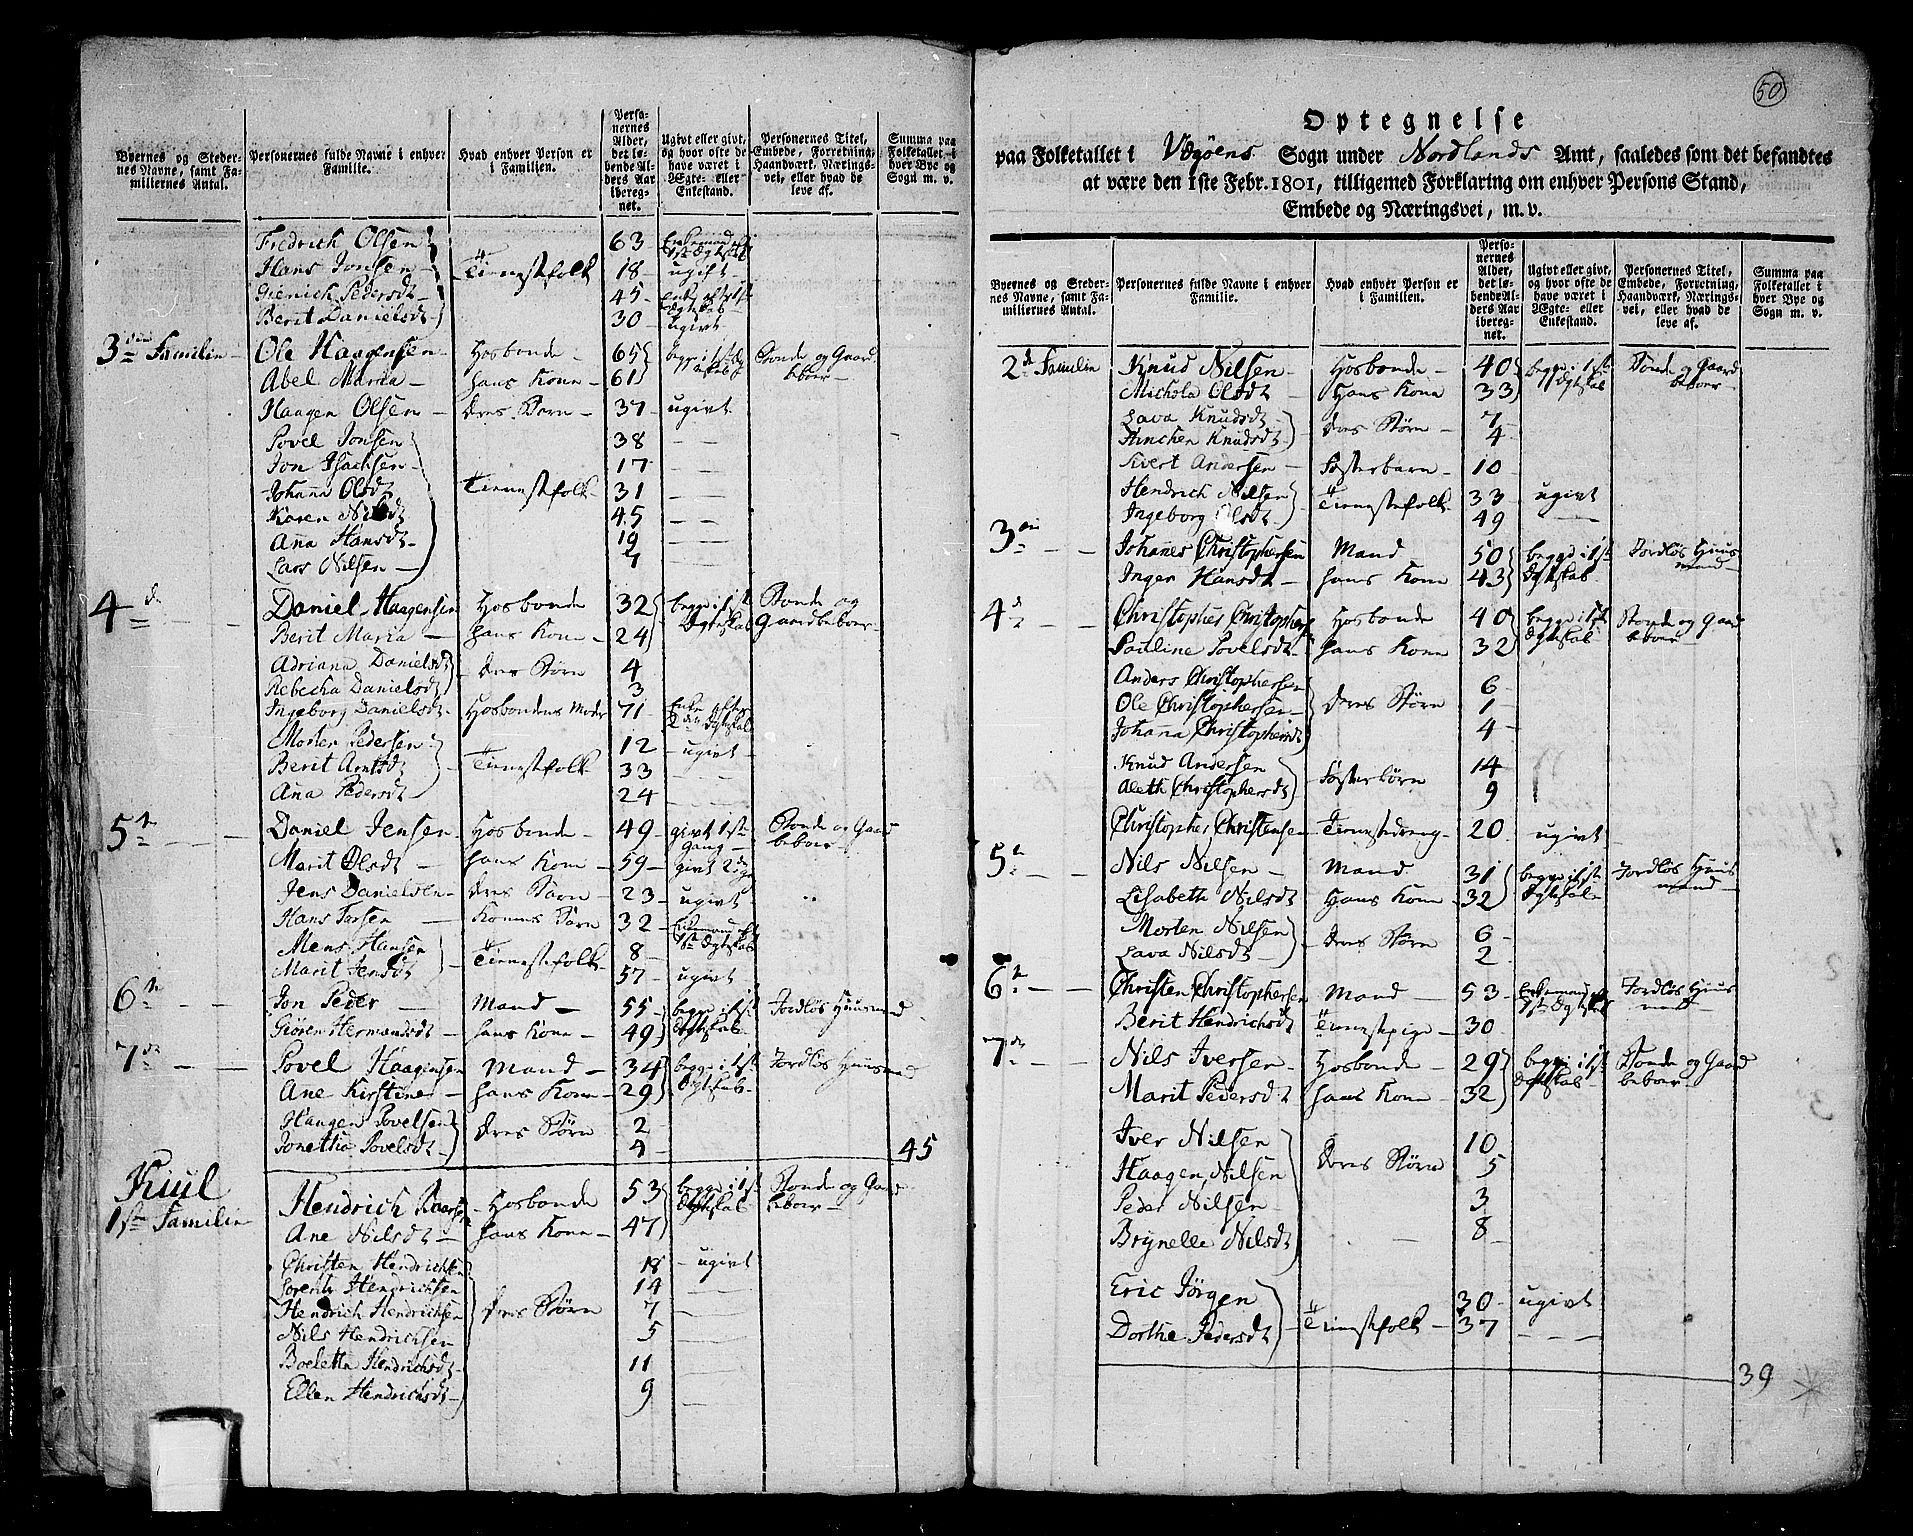 Byernes og Steder-
nes Navne, samt Fa-
miliernes Antal.
Personernes fulde Navne i enhver
Familie.
Hvad enhver Person er
i Familien.
Perso-
nernes
Alder,
det lø-
bende Al-
ders Aar
iberegg-
net.
Ugivt eller givt,
og hvor ofte de
have været i
Ægte- eller
Enkestand.
Personernes Titel,
Embede, Forretning,
Haandværk, Nærings-
vei, eller hvad de
leve af.
Summa paa
Folketallet i
hver Bye og
Sogn m. v.
Fredrich Olsen 63 Enkemand
1ste Ægtskab
Hans Jonsen Tienestefolk 18 ugift
Pedersdt 45 Enke efter 1ste Ægtskab
Berit Danielsdt 30 ugivt
3die Familie Ole Haagensen Hosbonde 65 begge i 1st Ægtskab Bonde og Gaard
beboer
Abel Maria hans Kone 61
Haagen Olsen deres Børn 37 ugivt
Povel Jonsen 38 — —
Jon Isachsen 17 — —
Johanna Olsdt Tienestefolk 31 — —
Karen Nilsdt 45 — —
Ana Hansdt 19 — —
Lars Nilsen 7
4de Daniel Haagensen Hosbonde 32 begge i 1st Ægtskab Bonde og
Gaardbeboer
Berit Maria hans Kone 24
Adriana Danielsdt deres Børn 4
Rebecka Danielsdt 3
Ingeborg Danielsdt Hosbondens Moder 71 Enke efter
2det Ægtskab
Morten Pedersen 12 ugivt
Berit Arntsdt Tienestefolk 33 — —
Ana Pedersdt 24 — —
5te Daniel Jensen Hosbonde 49 givt 1ste
gang Bonde og Gaard
beboer
Marit Olsdt hans Kone 59 givt 2dg
Jens Danielsen deres Børn 23 ugivt
Hans Torsen Konens Børn 32 Enkemand eft
1ste Ægtskab
Mens Hansen Tienestefolk 8
Marit Jensdt 57 ugivt
6te Jon Peder Mand 55 begge i 1st Ægtskab Jordløs Huusmand
Giören Hermansdt hans Kone 49
7de Povel Haagensen Mand 34 begge i 1st Ægtskab Jordløs Huusmand
Ane Kirstine hans Kone 29
Haagen Povelsen deres Børn 2
Jonetha Povelsdt 4 45
Kiul
1ste Familie Hendrich Hosbonde 53 begge i 1st Ægtskab Bonde og Gaard
beboer
Ane Nilsdt hans Kone 47
Christen Hendrichsen 18 ugivt
Lorentz Hendrichsen 14
Hendrich Hendrichsen deres Børn 7
Nils Hendrichsen 5
Boletta Hendrichsdt 11
Ellen Hendrichsdt 9
50
Optegnelse
paa Folketallet i Vegøens Sogn under Nordlands Amt, saaledes som det befandtes
at være den 1ste Febr. 1801, tilligemed Forklaring om enhver Persons Stand,
Embede og Næringsvei, m. v.
Byernes og Steder-
nes Navne, samt Fa-
miliernes Antal.
Personernes fulde Navne i enhver
Familie.
Hvad enhver Person er
i Familien.
Perso-
nernes
Alder,
det lø-
bende Al-
ders Aar
iberegg-
net.
Ugivt eller givt,
og hvor ofte de
have været i
Ægte- eller
Enkestand.
Personernes Titel,
Embede, Forretning,
Haandværk, Nærings-
vei, eller hvad de
leve af.
Summa paa
Folketallet i
hver Bye og
Sogn m. v.
2de Familie Knud Nilsen Hosbonde 40 begge i 1st Ægtskab Bonde og Gaard
beboer
Michela Olsdt Hans Kone 33
Lava Knudsdt deres Børn 7
Anchen Knudsdt 4
Sivert Andersen Fosterbarn 10
Hendrich Nilsen Tienestefolk 33 ugivt
Ingeborg Olsdt 49 —
3die Johanes Christophersen Mand 50 begge i 1st Ægtskab Jordløs Huus
mand
Inger Hansdt hans Kone 43
4de Christopher Christophers Hosbonde 40 begge i 1st Ægtskab Bonde og Gaard
beboer
Pauline Povelsdt hans Kone 32
Anders Christophersen 6
Ole Christophersen deres Børn 1
Johanna Christophersdt 4
Knud Andersen Fosterbørn 14
Aleth Christophersdt 9
Christopher Christensen Tienestedreng 20 ugivt
5te Nils Nilsen Mand 31 begge i 1st Ægtskab Jordløs Huus
mand
Lisabeth Nilsdt Hans Kone 32
Morten Nilsen deres Børn 6
Lava Nilsdt 2
6te Christen Christophersen Mand 53 Enkemand
1ste Ægtskab Jordløs Huus
mand
Berit Hendrichsdt Tienestepige 30
7de Nils Iversen Hosbonde 29 begge i 1st Ægtskab Bonde og Gaard
beboer
Marit Pedersdt hans Kone 32
Iver Nilsen 10
Haagen Nilsen deres Børn 5
Peder Nilsen 3
Brynelle Nilsdt 8
Eric Jörgen Tienestefolk 30 ugivt
Dorthe Pedersdt 37 — —
39